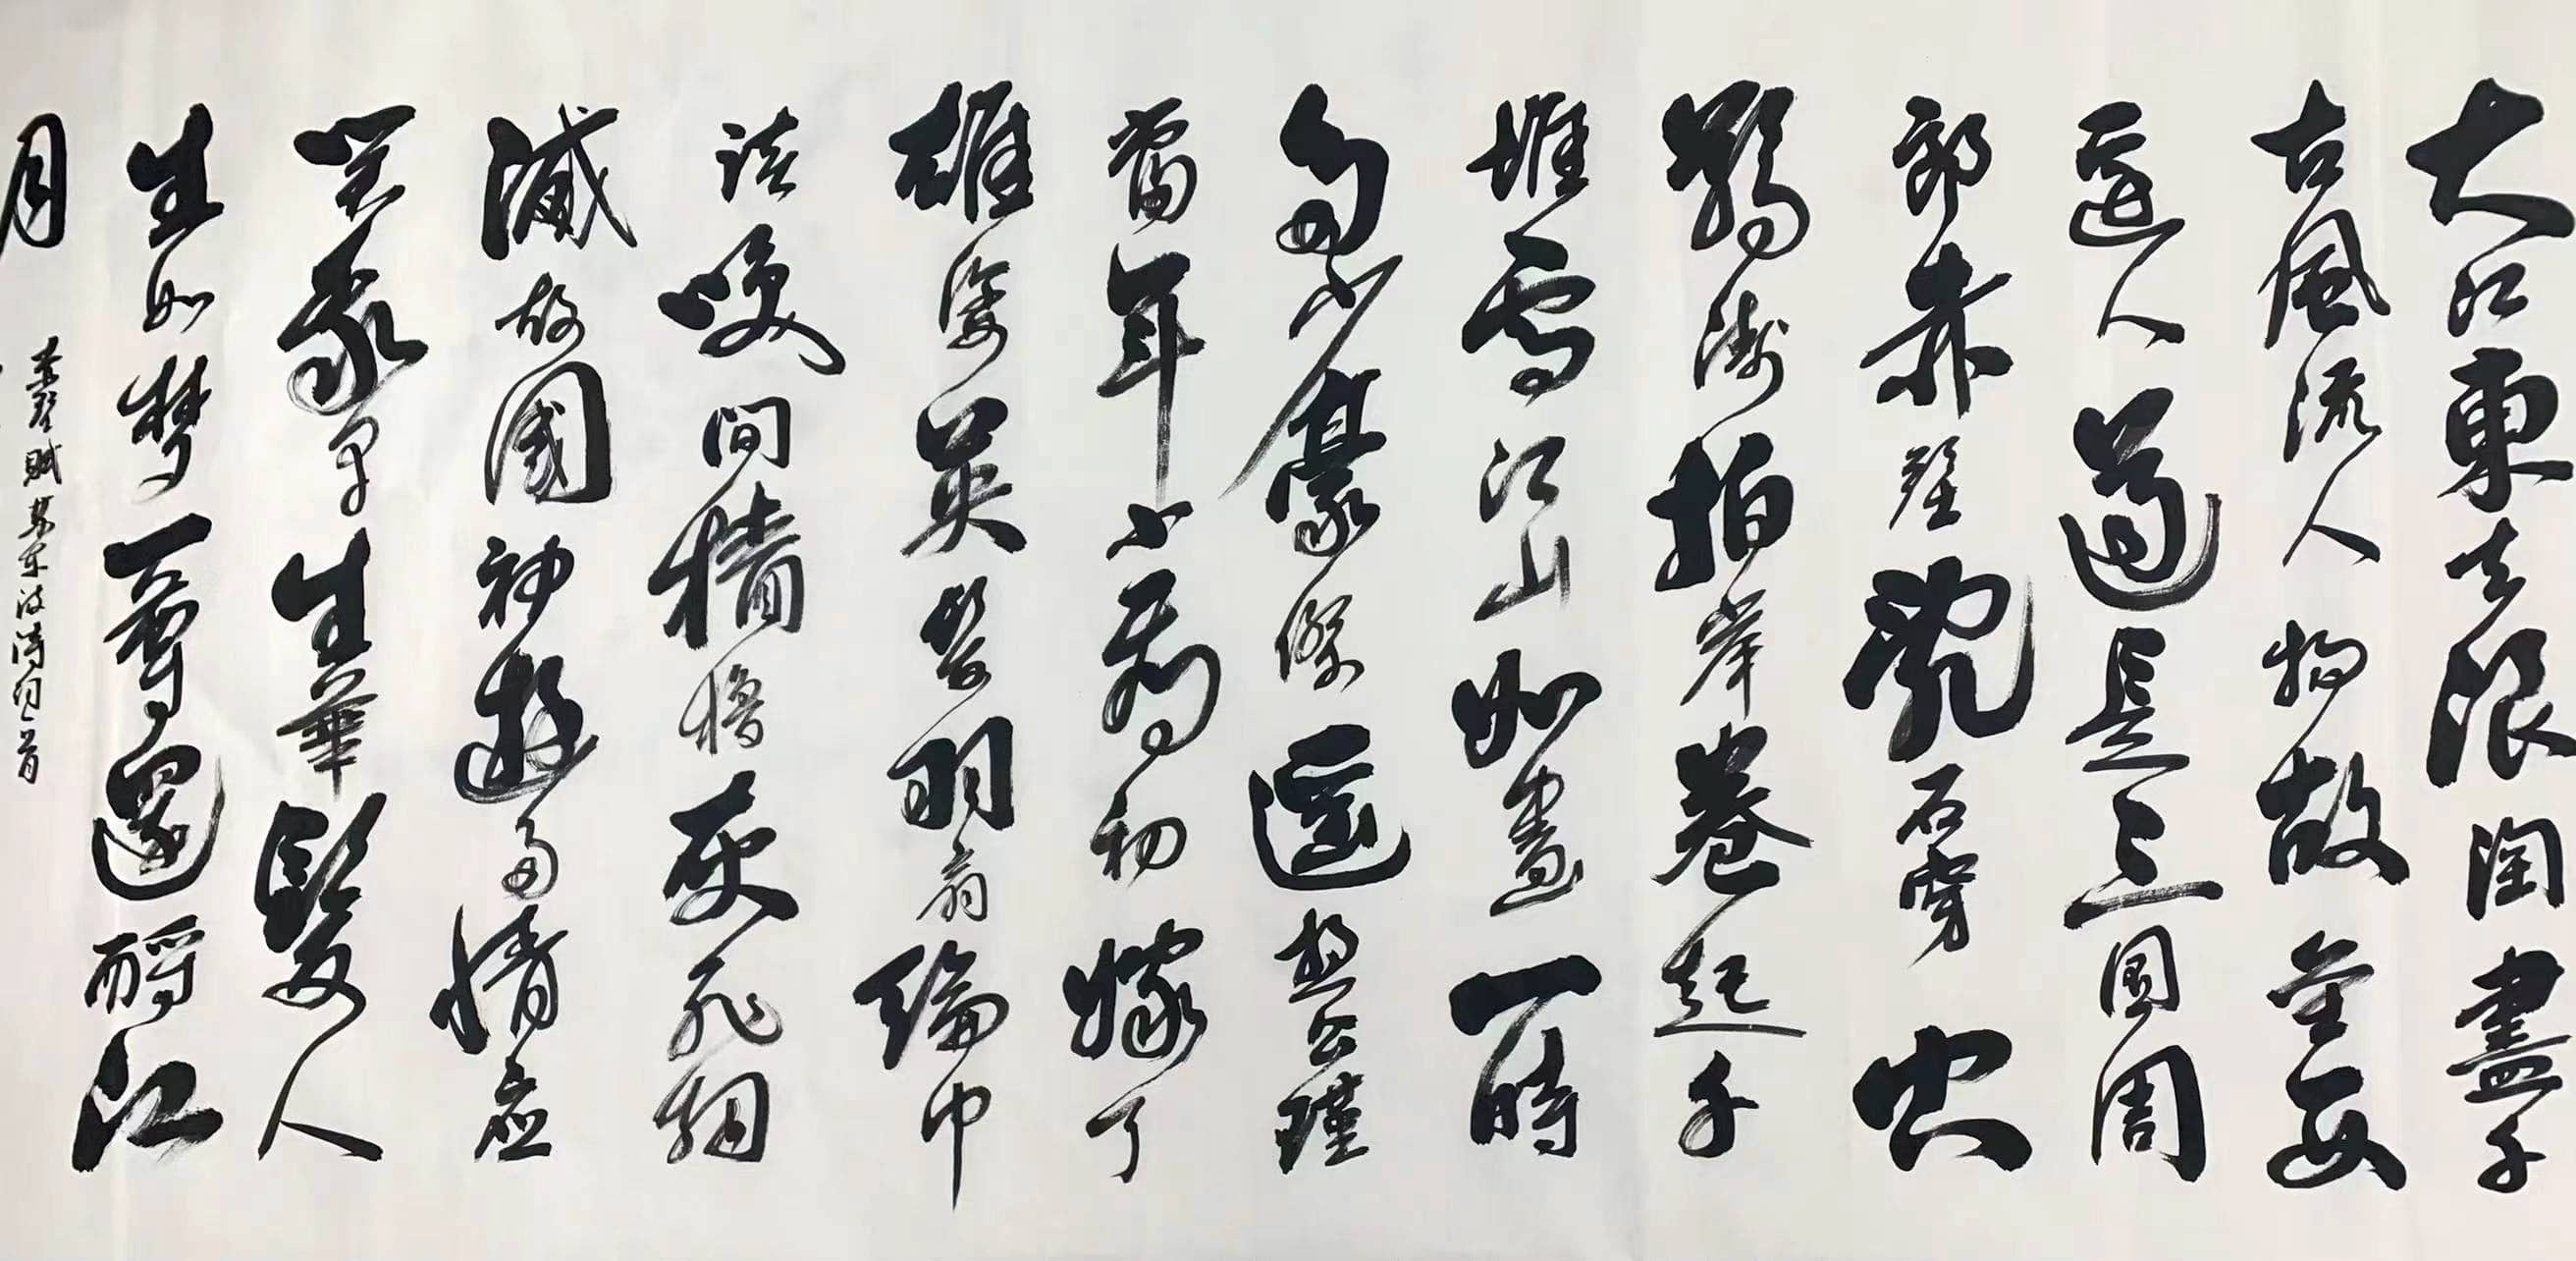 大江東去浪淘盡千
古風流人物故壘西
邊人道是三國周
郎赤壁亂石穿空
驚濤拍岸卷起千
堆雪江山如畫一時
多少豪傑遙想公瑾
當年小喬初嫁了
雄姿英發羽扇綸巾
談咲間檣櫓灰飛烟
滅故國神遊多情應
笑我早生華髮人
生如夢一尊還酹江
月
赤壁賦蘇東坡詩詞一首